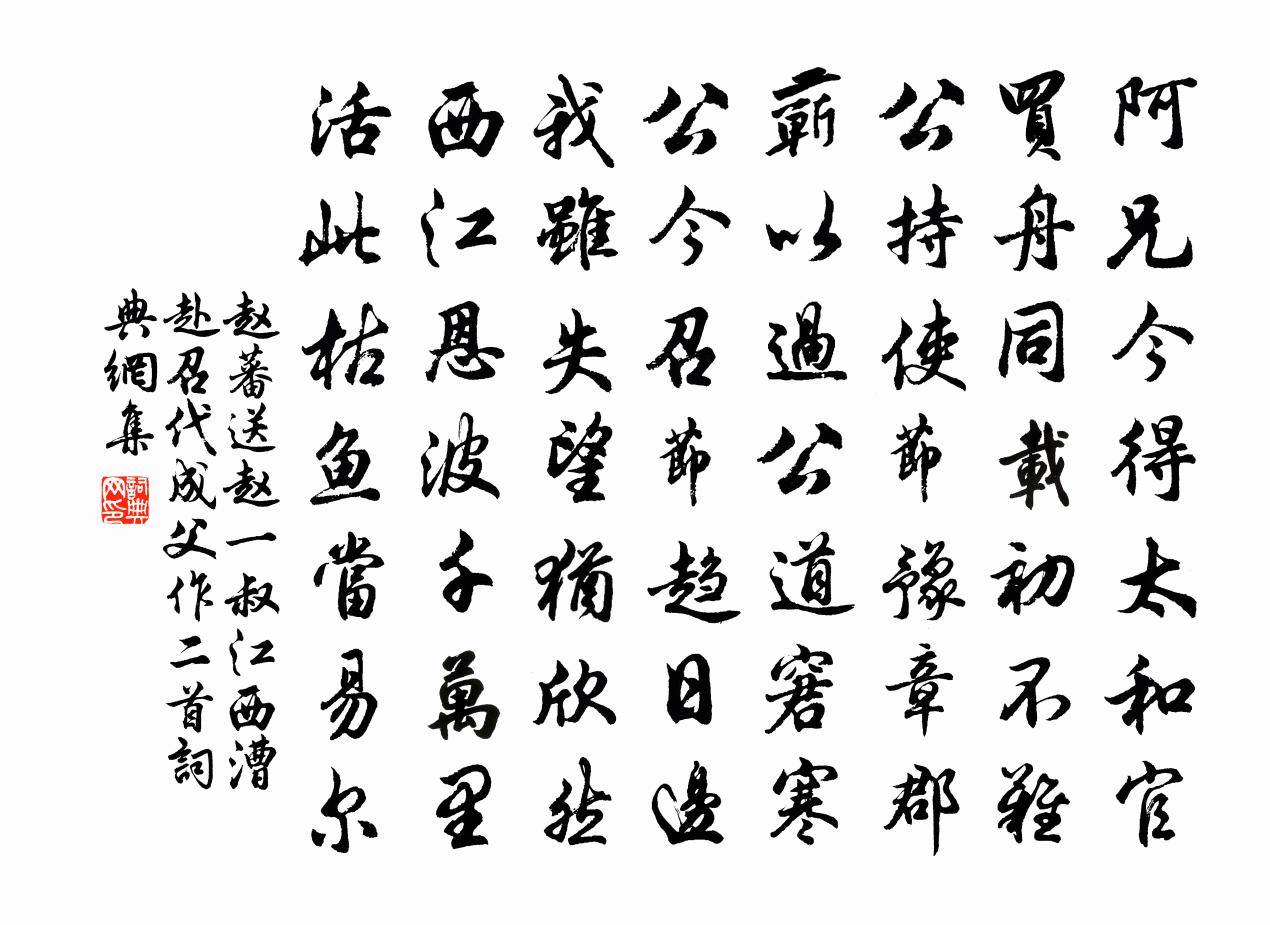 阿兄今得太和官
買舟同載初不難
公持使節豫章郡
蘄以過公道窘寒
公今召節趨日邊
我雖失望猶欣然
西江恩波千萬里
活此枯魚當易尔
赵蕃送赵一叔江西漕
赴召代成父作二首詞
典網集
詞典网印